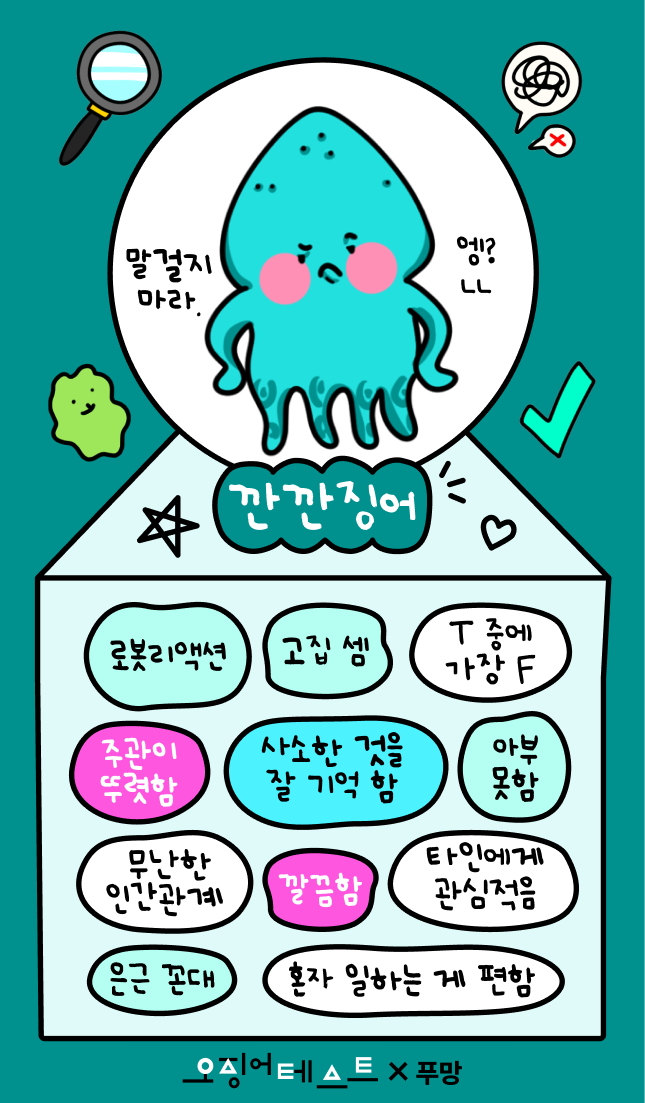 말걸지
마라.
엥!?
ㄴㄴ
깐깐징어
로봇리액션
고집 셈
T 중에
가장 F
주관이
뚜렷함
사소한 것을
잘 기억 함
아부
못함
무난한
인간관계
깔끔함
타인에게
관심적음
은근 꼰대
혼자 일하는 게 편함
오징어테스트 × 푸망